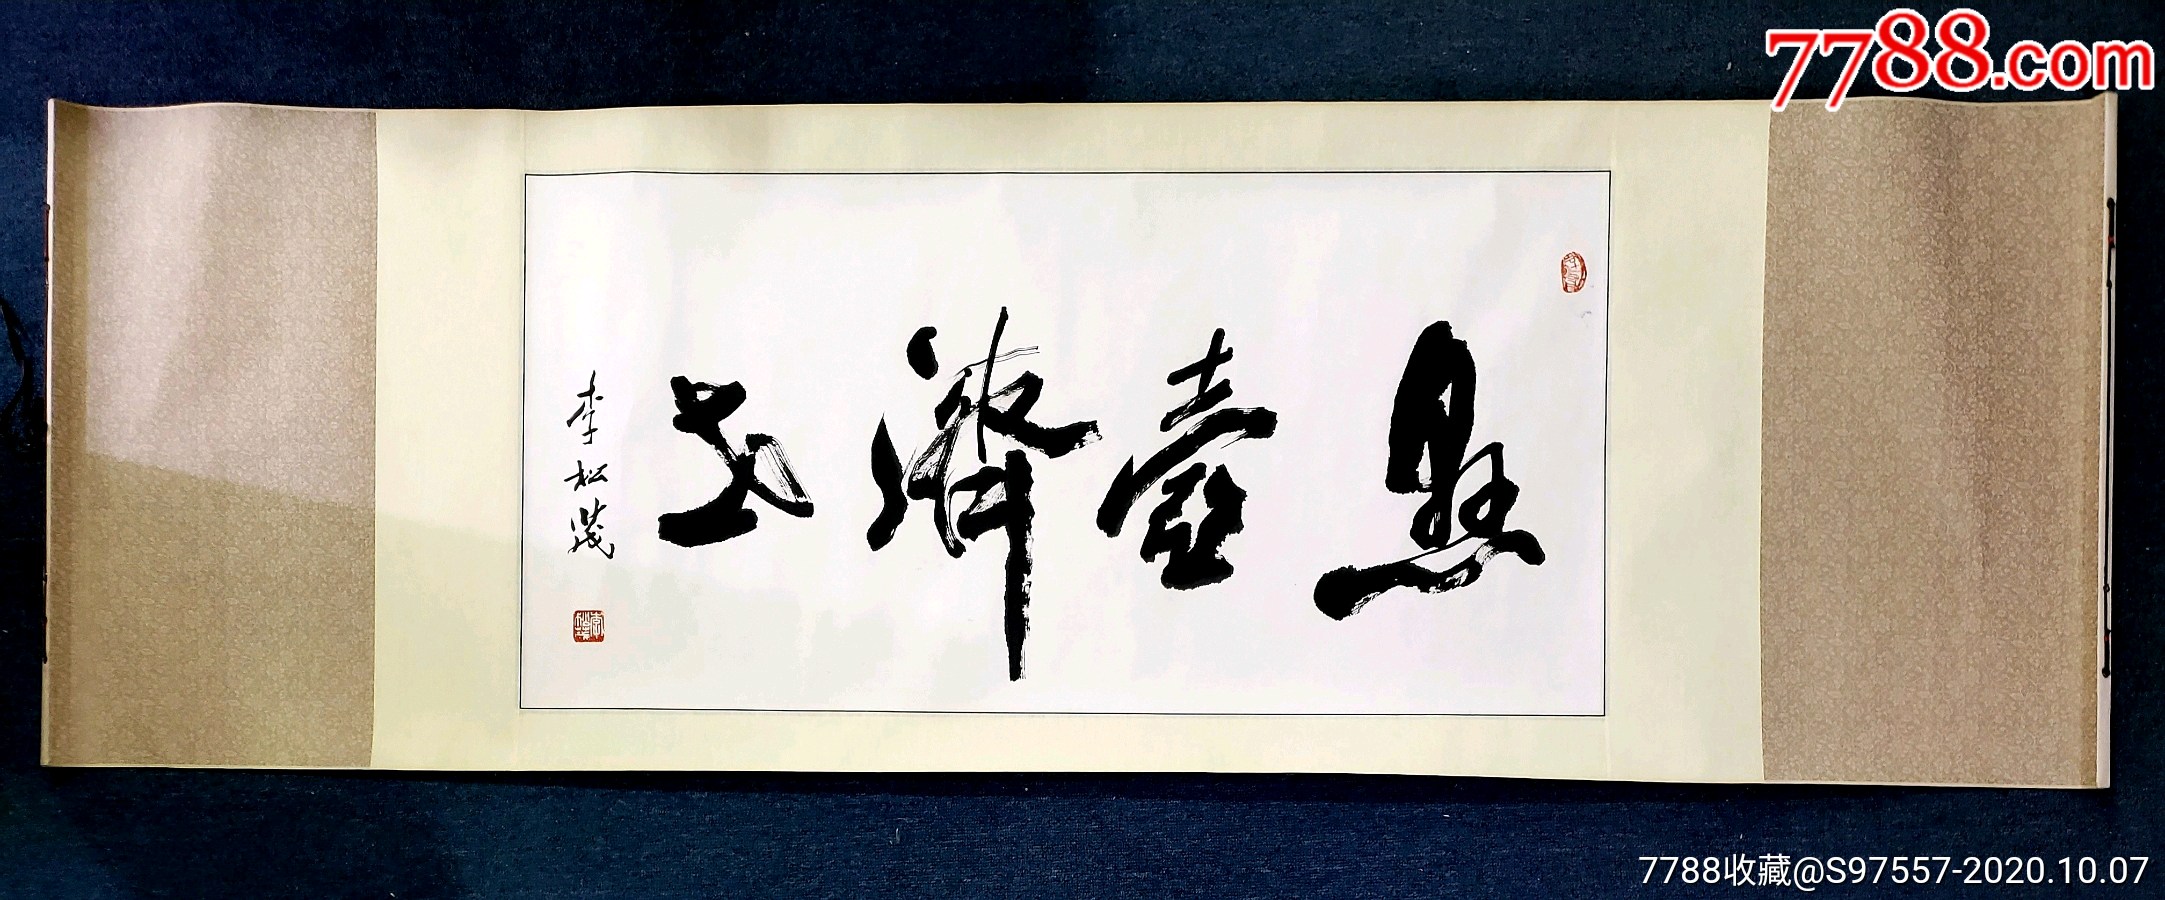 7788.com
懸壺濟世
李松茂
7788收藏@S97557-2020.10.07